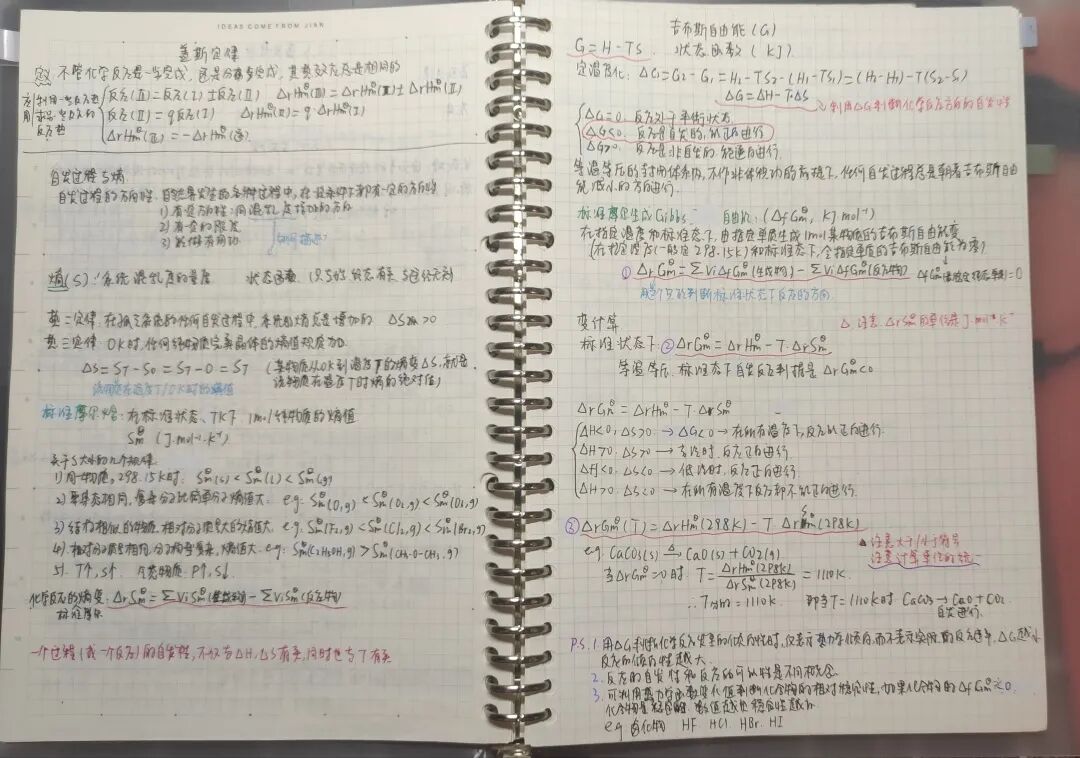 IDEAS COME FROM JIAN
盖斯定律
定义 不管化学反应是一步完成, 还是分数步完成, 其热效应总是相同的
应用
反应(Ⅲ)=反应(Ⅰ)±反应(Ⅱ) ΔrHm^θ(Ⅲ)=ΔrHm^θ(Ⅰ)±ΔrHm^θ(Ⅱ)
反应(Ⅱ)=q反应(Ⅰ) ΔrHm^θ(Ⅱ)=q·ΔrHm^θ(Ⅰ)
ΔrHm^θ(正)=-ΔrHm^θ(逆)
自发过程与熵
自发过程的方向性: 自然界发生的各种过程中, 在一定条件下都有一定的方向性
1) 有一定方向性: 向混乱度增加的方向
2) 有一定的限度
3) 能做有用功
如何描述?
熵(S): 系统混乱度的量度 状态函数
热二定律: 在孤立系统的任何自发过程中, 系统的熵总是增加的 ΔS孤>0
热三定律: 0K时, 任何纯物质完美晶体的熵值规定为0.
ΔS=ST-S0=ST-0=ST (某物质从0K到温度T的熵变ΔS, 就是
该物质在温度T时熵的绝对值)
标准摩尔熵: 在标准状态、TK下 1mol纯物质的熵值
Sm^θ (J·mol⁻¹·K⁻¹)
关于S大小的几个规律
1) 同一物质, 298.15K时: Sm^θ(s)<Sm^θ(l)<Sm^θ(g)
2) 聚集态相同, 复杂分子比简单分子熵值大. eg: Sm^θ(O,g)<Sm^θ(O₂,g)<Sm^θ(O₃,g)
3) 结构相似的物质, 相对分子质量大的熵值大. eg. Sm^θ(F₂,g)<Sm^θ(Cl₂,g)<Sm^θ(Br₂,g)
4) 相对分子质量相同, 分子构型复杂, 熵值大. eg: Sm^θ(C₂H₅OH,g)>Sm^θ(CH₃-O-CH₃,g)
5). T↑, S↑. 气态物质: P↑, S↓.
化学反应的熵变: ΔrSm^θ=∑ViSm^θ(生成物)-∑ViSm^θ(反应物)
标准摩尔
一个过程(或一个反应)的自发性, 不仅与ΔH, ΔS有关, 同时也与T有关
吉布斯自由能(G)
G=H-TS. 状态函数 (KJ)
定温变化: ΔG=G2-G1=H2-TS2-(H1-TS1)=(H2-H1)-T(S2-S1)
ΔG=ΔH-T·ΔS 利用ΔG判断化学反应方向的自发性
ΔG=0, 反应处于平衡状态
ΔG<0, 反应是自发的, 能正向进行
ΔG>0, 反应是非自发的, 能逆向进行.
等温等压的封闭体系内, 不作非体积功的前提下, 任何自发过程总是朝着吉布斯自由
能减小的方向进行.
标准摩尔生成Gibbs 自由能: (ΔfGm^θ, KJ mol⁻¹)
在指定温度和标准态下, 由指定单质生成1mol某物质的吉布斯自由能变
(在指定温度(一般是298.15K)和标准态下, 令指定单质的吉布斯自由能为零)
① ΔrGm^θ=∑ViΔfGm^θ(生成物)-∑ViΔfGm^θ(反应物)
用这个只能判断标准状态下反应的方向
△ 注意ΔrSm^θ的单位是J·mol⁻¹·K⁻¹
标准状态下: ② ΔrGm^θ=ΔrHm^θ-T·ΔrSm^θ
等温等压, 标准态下自发反应判据是ΔrGm^θ<0
ΔrGm^θ=ΔrHm^θ-T·ΔrSm^θ
ΔH<0, ΔS>0 → ΔG<0 → 在所有温度下, 反应能正向进行.
ΔH>0, ΔS>0 → 高温时, 反应正向进行.
ΔH<0, ΔS<0 → 低温时, 反应正向进行.
ΔH>0, ΔS<0 → 在所有温度下反应都不能正向进行.
③ ΔrGm^θ(T)=ΔrHm^θ(298K)-T·ΔrSm^θ(298K)
▲注意大于/小于符号
注意计算单位的统一
eg CaCO₃(s) △→ CaO(s)+CO₂(g)
当ΔrGm^θ=0时 T=ΔrHm^θ(298K)/ΔrSm^θ(298K)=1110K.
∴T分解=1110K. 即当T=1110K时 CaCO₃→CaO+CO₂
自发进行.
P.S. 1. 用ΔG判断化学反应发生的倾向性时, 仅表示热力学倾向, 而不表示实际的反应速率, ΔG越小
反应的倾向性越大.
2. 反应的自发性和反应的可以性是不同概念.
3. 可利用热力学函数变化值判断化合物的相对稳定性, 如果化合物的ΔfGm^θ<0.
eg. 卤化物 HF HCl HBr HI